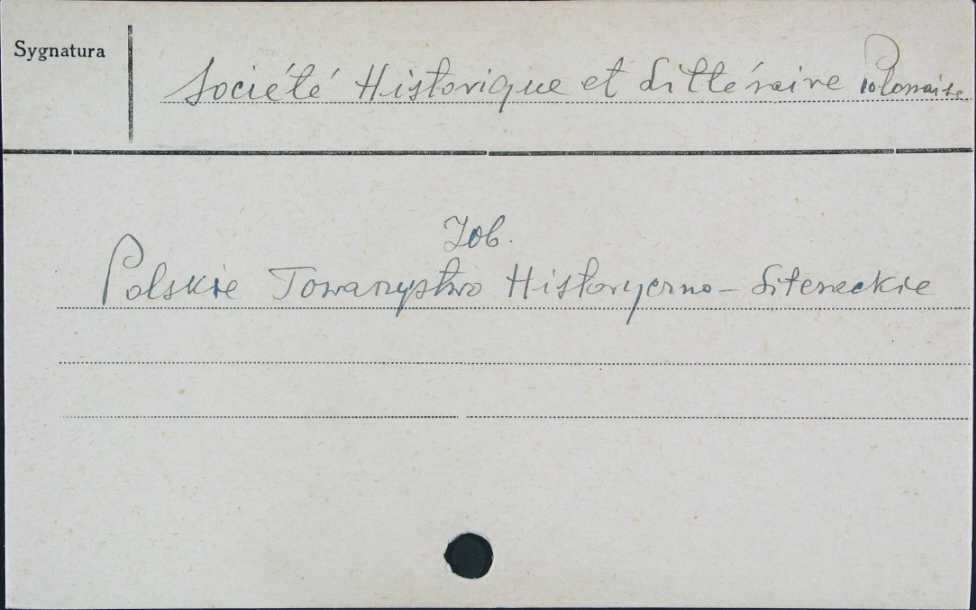 Sygnatura
Société Historique et Littéraire Polonaise
Zob.
Polskie Towarzystwo Historyczno-Literackie